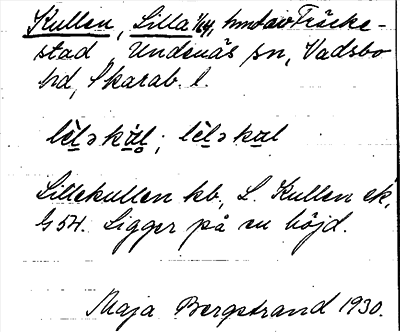 Kullen, Lilla 1/64, hmd av Fräcke-
stad Undenäs sn, Vadsbo
hd, Skarab. l.
lèlə kùl; lèlə kul
Lillekullen kb, L. Kullen ek,
G 54. Ligger på en höjd.
Maja Bergstrand 1930.